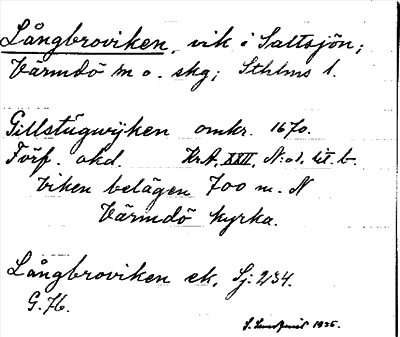 Långbroviken, vik i Saltsjön;
Värmdö sn o. skg; Sthlms l.
Gillstugwijken omkr. 1670.
Förf. okd. Kr.A. XXII, N:o1. lit b.
Viken belägen 700 m. N
Värmdö kyrka.
Långbroviken ek. Sj. 234.
G. 76.
S. 1935.